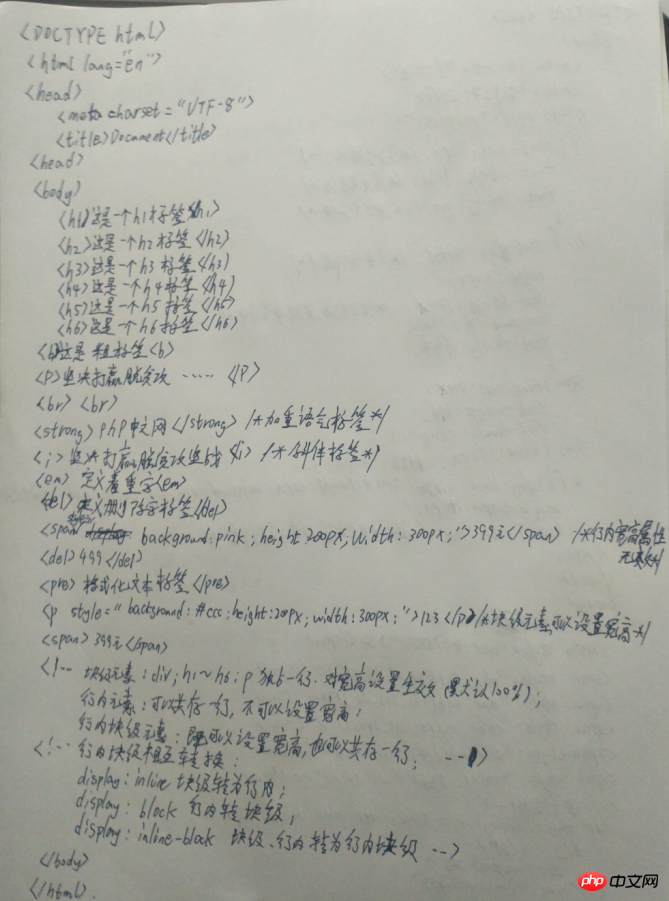 <DOCTYPE html>
<html lang="en">
<head>
<meta charset="UTF-8">
<title>Document</title>
<head>
<body>
<h1>这是一个h1标签</h1>
<h2>这是一个h2标签</h2>
<h3>这是一个h3标签</h3>
<h4>这是一个h4标签</h4>
<h5>这是一个h5标签</h5>
<h6>这是一个h6标签</h6>
<b>这是 粗标签<b>
<P>坚决打赢脱贫攻 ...... </P>
<br> <br>
<strong>PhP中文网</strong> /*加重语气标签*/
<i> 坚决打赢脱贫攻坚战 </i> /*斜体标签*/
<em> 定义着重字<em>
<del> 定义删除字标签</del>
<span background:pink; height:200px; width:300px;">399元</span> /*行内宽高属性
无效*/
<del>499</del>
<pre> 格式化文本标签</pre>
<p style="background:#ccc;height:200px;width:300px;">123</p> /*块级元素可以设置宽高*/
<span>399元</span>
<!-- 块级元素:div;h1~h6;p 独占一行.对宽高设置生效(默认100%);
行内元素:可以共存一行,不可以设置宽高;
行内块级元素:既可以设置宽高,也可以共存一行; -->
<!-- 行内块级相互转换:
display:inline 块级转为行内;
display:block 行内转块级;
display:inline-block 块级、行内转为行内块级 -->
</body>
</html>.
php 中文网